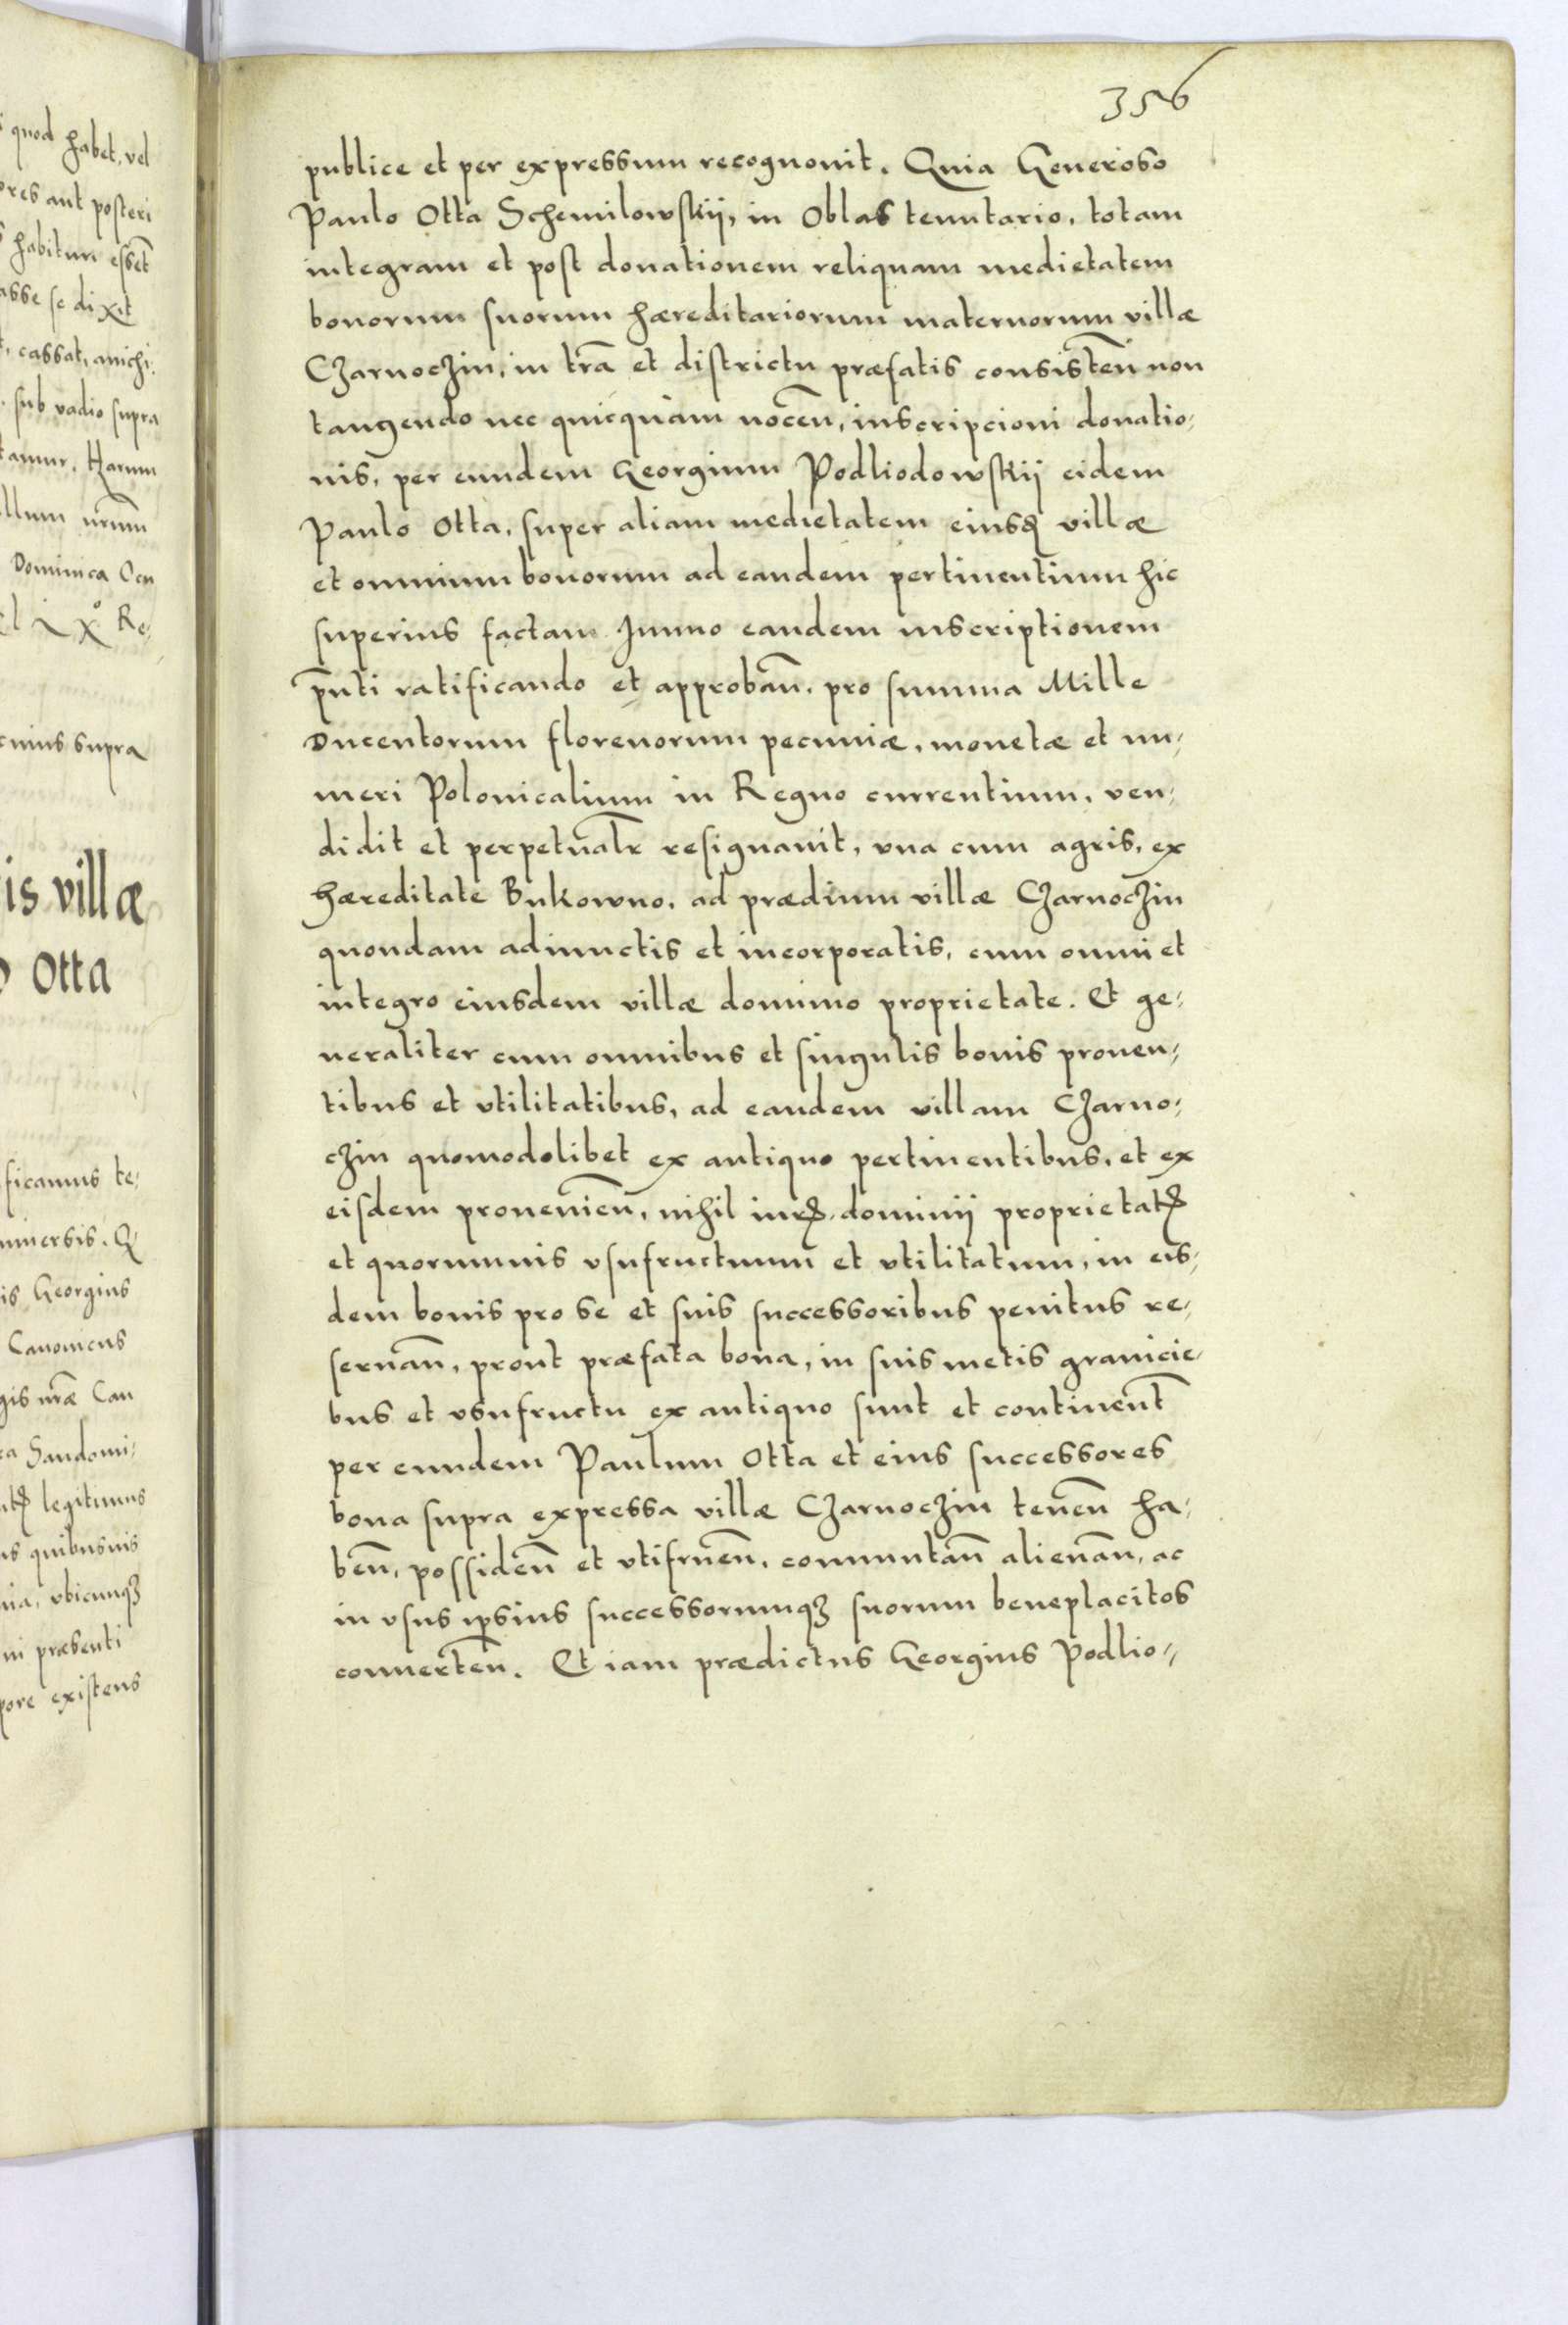 quod habet, vel
ores aut posteri
habituri essēt
asse se dixit
t, cassat, anichi,
sub vadio supra
tamur. Harum
llum nr̄um
Dominica Ocu
Lxº Re,
cuius supra
is villæ
Otta
ficamus te,
niuersis. Q
is Georgius
Canonicus
gis nr̄æ Can
ra Sandomi,
legitimus
us quibusuis
nia, vbicunqȝ
ni præsenti
pore existens
356
publice et per expressum recognouit. Quia Generoso
Paulo Otta Schemilowskij, in Oblas tenutario, totam
integram et post donationem reliquam medietatem
bonorum suorum hæreditariorum maternorum villæ
Czarnoczin, in tr̄a et districtu præfatis consisteñ non
tangendo nec quicquam noceñ, inscripcioni donatio,
nis, per eundem Georgium Podliodowskij eidem
Paulo Otta, super aliam medietatem eiusdꝫ villæ
et omnium bonorum ad eandem pertinentium hic
superius factam Immo eandem inscriptionem
pn̄ti ratificando et approbañ, pro summa Mille
Ducentorum florenorum pecuniæ, monetæ et nu,
meri Polonicalium in Regno currentium, ven,
didit et perpetualr̄ resignauit, vna cum agris, ex
hæreditate Bukowno, ad prædium villæ Czarnoczin
quondam adiunctis et incorporatis, cum omni et
integro eiusdem villæ dominio proprietate. Et ge,
neraliter cum omnibus et singulis bonis prouen,
tibus et vtilitatibus, ad eandem villam Czarno,
czin quomodolibet ex antiquo pertinentibus, et ex
eisdem prouenieñ, nihil iurꝭ, dominij proprietatꝭ
et quorumuis vsufructuum et vtilitatum, in eis,
dem bonis pro se et suis successoribus penitus re,
seruañ, prout præfata bona, in suis metis granicie,
bus et vsufructu ex antiquo sunt et continent̄
per eundem Paulum Otta et eius successores
bona supra expressa villæ Czarnoczin teneñ ha,
beñ, possideñ et vtifrueñ, commutañ alienañ, ac
in vsus ip̄sius successorumqȝ suorum beneplacitos
conuerteñ. Et iam prædictus Georgius Podlio,